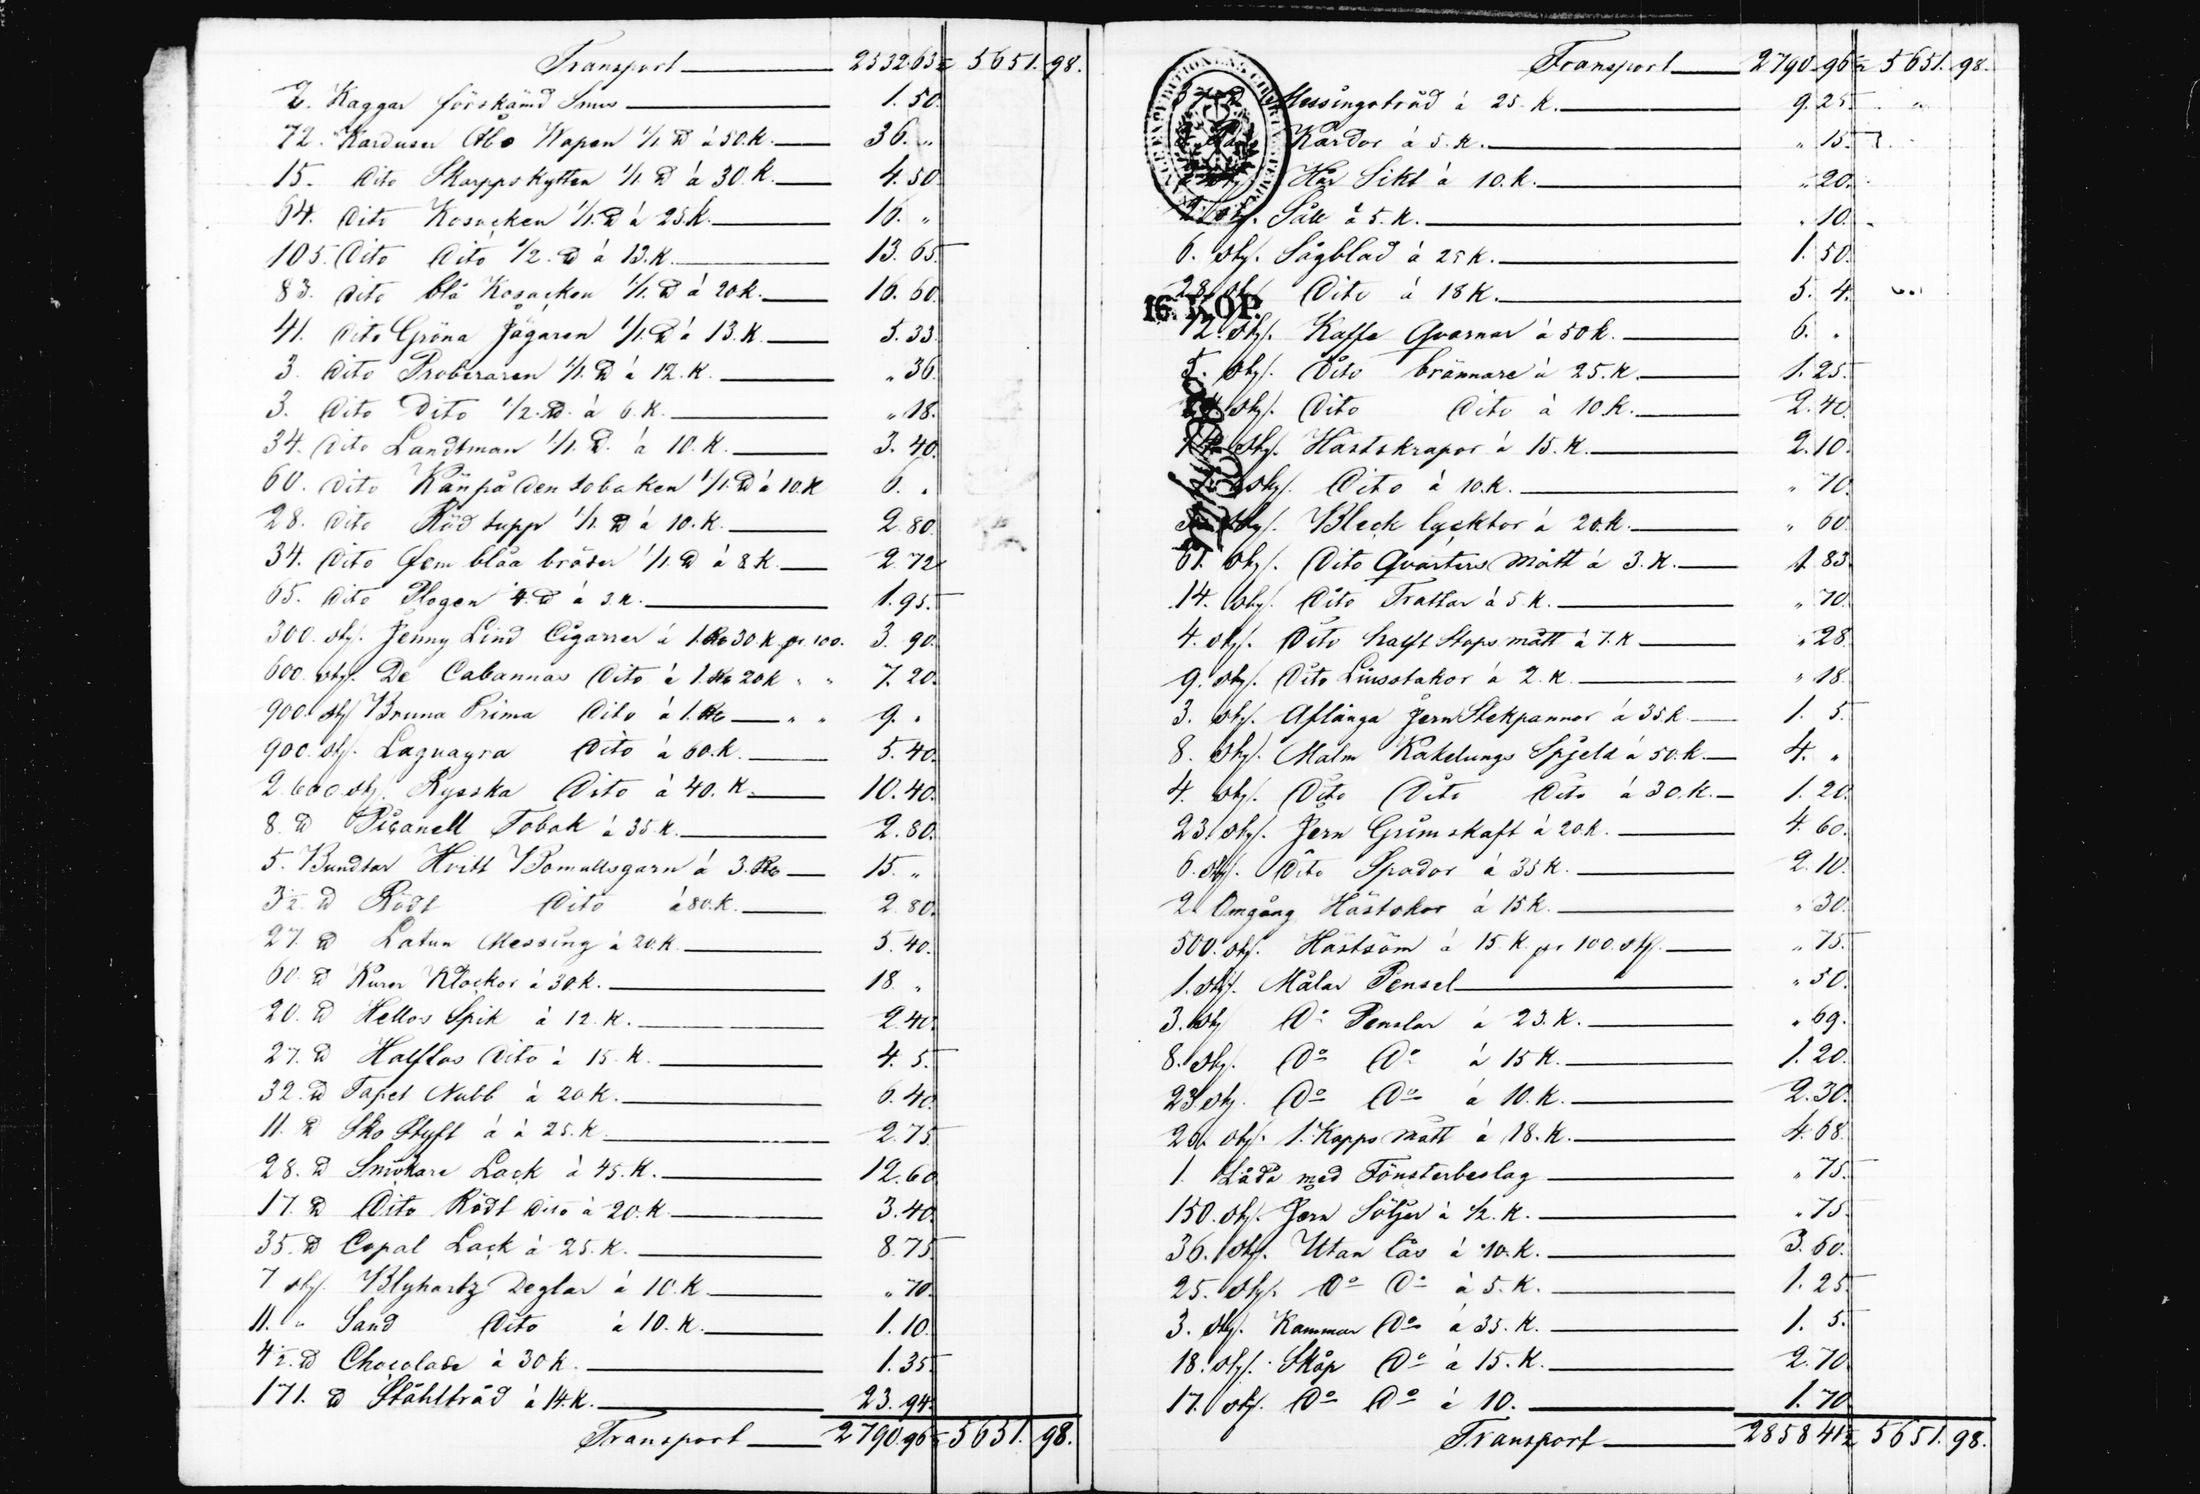 Transport 2532.63½ 5651. 98.
2. Kaggar förskämd Snus 1. 50.
72. Karduser Åbo Wapen 1/1 ℔ à 50. K. 36. "
15. Dito Skarppskytten 1/1. ℔ à 30. K. 4. 50.
64. Dito Kosacken 1/1. ℔ à 25. K. 16. "
105. Dito Dito 1/2. ℔ à 13. K. 13. 65.
83. Dito blå Kosacken 1/1. ℔ à 20 K. 16. 60.
41. Dito Gröna Jägaren 1/1. ℔ à 13. K. 5. 33.
3. Dito Proberaren 1/1. ℔ à 12. K. " 36.
3. Dito Dito 1/2. ℔. à 6. K. " 18.
34. Dito Landtman 1/1. ℔. à 10. K. 3. 40.
60. Dito Känpå den tobaken 1/1. ℔ à 10. K 6. "
28. Dito Röd tupp 1/1. ℔ à 10. K. 2. 80.
34. Dito Fem blåa bröder 1/1. ℔ à 8 K. 2. 72
65. Dito Plogen ¼. ℔ à 3. K. 1. 95.
300. styf. Jenny Lind Cigarrer à 1. Ro 30 K. pr 100. 3. 90.
600. styf. De Cabannas Dito à 1. Ro 20 K " " 7. 20.
900. styf Bruna Prima Dito à 1. Ro " " 9. "
900. styf. Laguayra Dito à 60. K. 5. 40.
2.600. styf. Rysska Dito à 40. K. 10. 40.
8. ℔ Picanell Tobak à 35. K. 2. 80.
5. Bundtar Hvitt Bomullsgarn à 3. Ro 15. "
3½. ℔ Rödt Dito à 80. K. 2. 80.
27. ℔ Latun Messing à 20. K. 5. 40.
60. ℔ Kuror Klockor à 30. K. 18 "
20. ℔ Hellos Spik à 12. K. 2. 40.
27. ℔ Halflos Dito à 15. K. 4. 5.
32. ℔ Tapet Nubb à 20. K. 6. 40.
11. ℔ Sko Styft à à 25. K. 2. 75.
28. ℔ Snickare Lack à 45. K. 12. 60.
17. ℔ Dito Rödt Dito à 20. K. 3. 40.
35. ℔ Copal Lack à 25. K. 8. 75.
7 styf. Blyhartz Deglar à 10. K " 70.
11. " Sand Dito à 10. K. 1. 10.
4½. ℔ Chocolade à 30 K. 1. 35.
171. ℔ Ståhltråd à 14. K. 23. 94.
Transport 2790. 96½ 5651. 98.
Transport 2790. 96½ 5651. 98.
Messingstråd à 25. K. 9. 25.
Kardor à 5. K. " 15.
Hår Sikt à 10. K. " 20.
Såll à 5. K. " 10.
6. styf. Sågblad à 25 K. 1. 50.
28. styf. Dito à 18 K. 5. 4.
16. KOP.
12. styf. Kaffe Qvarnar à 50 K. 6. "
5. styf. Dito brännare à 25. K. 1. 25.
24. styf. Dito Dito à 10. K. 2. 40.
14. styf. Hästskrapor à 15. K. 2. 10.
styf. Dito à 10. K. " 70.
3. styf. Bleck lycktor à 20. K. " 60.
61. styf. Dito Qvarters Mått à 3. K. 1. 83.
14. styf. Dito Trattar à 5. K. " 70.
4. styf. Dito halft Stops mått à 7. K " 28.
9. styf. Dito Liusstakor à 2. K. " 18.
3. styf. Aflånga Jern Stekpannor à 35. K. 1. 5.
8. styf. Malm Kakelungs Spjeld à 50. K. 4. "
4. styf. Dito Dito Dito à 30. K. 1. 20.
23. styf. Jern Grimskaft à 20 K. 4. 60.
6. styf. Dito Spador à 35 K. 2. 10.
2. Omgång Hästskor à 15 K. " 30.
500. styf. Hästsöm à 15. K. pr 100. styf. " 75.
1. styf. Målar Pensel " 50.
3. styf Do Penslar à 23. K. " 69.
8. styf. Do Do à 15 K. 1. 20.
23 styf. Do Do à 10. K. 2. 30.
26. styf. 1. Kapps Mått à 18. K. 4. 68.
1. Låda med Fönsterbeslag " 75.
150. styf. Jern Söljer à ½. K. " 75.
36. styf. Utan lås à 10. K. 3. 60.
25. styf. Do Do à 5. K. 1. 25
3. styf. Kammar Do à 35. K. 1. 5.
18. styf. Skåp Do à 15. K. 2. 70.
17. styf. Do Do à 10. 1. 70
Transport 2858 41½ 5651. 98.